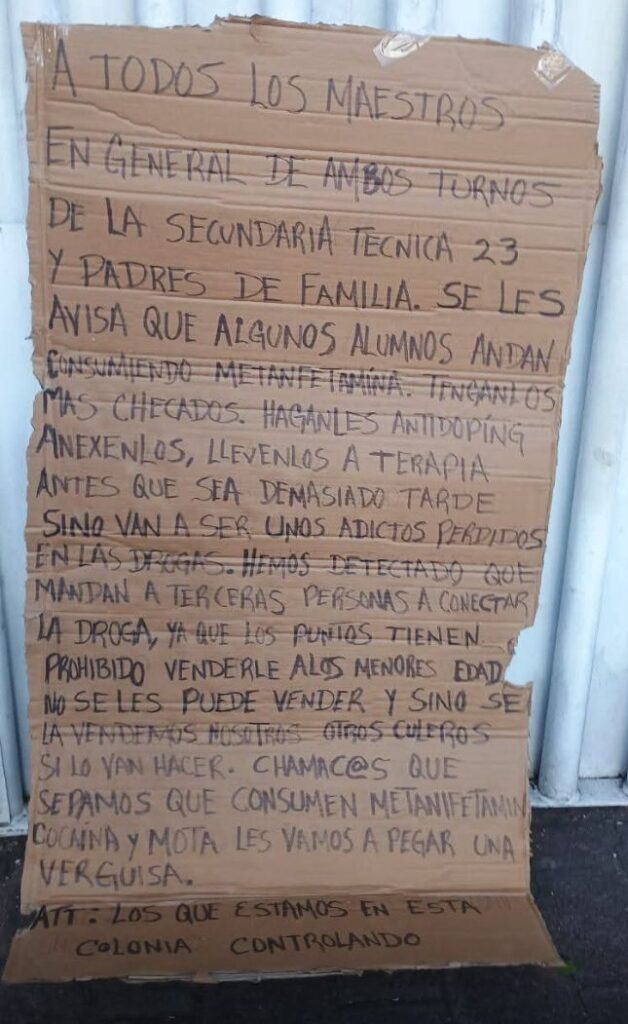 A TODOS LOS MAESTROS
EN GENERAL DE AMBOS TURNOS
DE LA SECUNDARIA TECNICA 23
Y PADRES DE FAMILIA. SE LES
AVISA QUE ALGUNOS ALUMNOS ANDAN
CONSUMIENDO METANFETAMINA. TENGANLOS
MAS CHECADOS. HAGANLES ANTIDOPING
ANEXENLOS, LLEVENLOS A TERAPIA
ANTES QUE SEA DEMASIADO TARDE
SINO VAN A SER UNOS ADICTOS PERDIDOS
EN LAS DROGAS. HEMOS DETECTADO QUE
MANDAN A TERCERAS PERSONAS A CONECTAR
LA DROGA, YA QUE LOS PUNTOS TIENEN
PROHIBIDO VENDERLE A LOS MENORES EDAD
NO SE LES PUEDE VENDER Y SINO SE
LA VENDEMOS NOSOTROS OTROS CULEROS
SI LO VAN HACER. CHAMAC@S QUE
SEPAMOS QUE CONSUMEN METANIFETAMIN
COCAINA Y MOTA LES VAMOS A PEGAR UNA
VERGUISA.
ATT: LOS QUE ESTAMOS EN ESTA
COLONIA CONTROLANDO